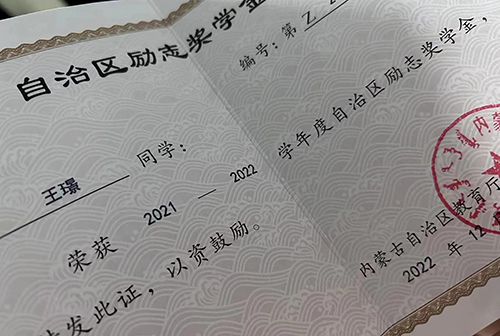 自治区励志奖学金
编号:第乙
王璟 同学:
荣获 2021 — 2022 学年度自治区励志奖学金,
发此证,以资鼓励。
内蒙古自治区教育厅
2022 年 12
内蒙